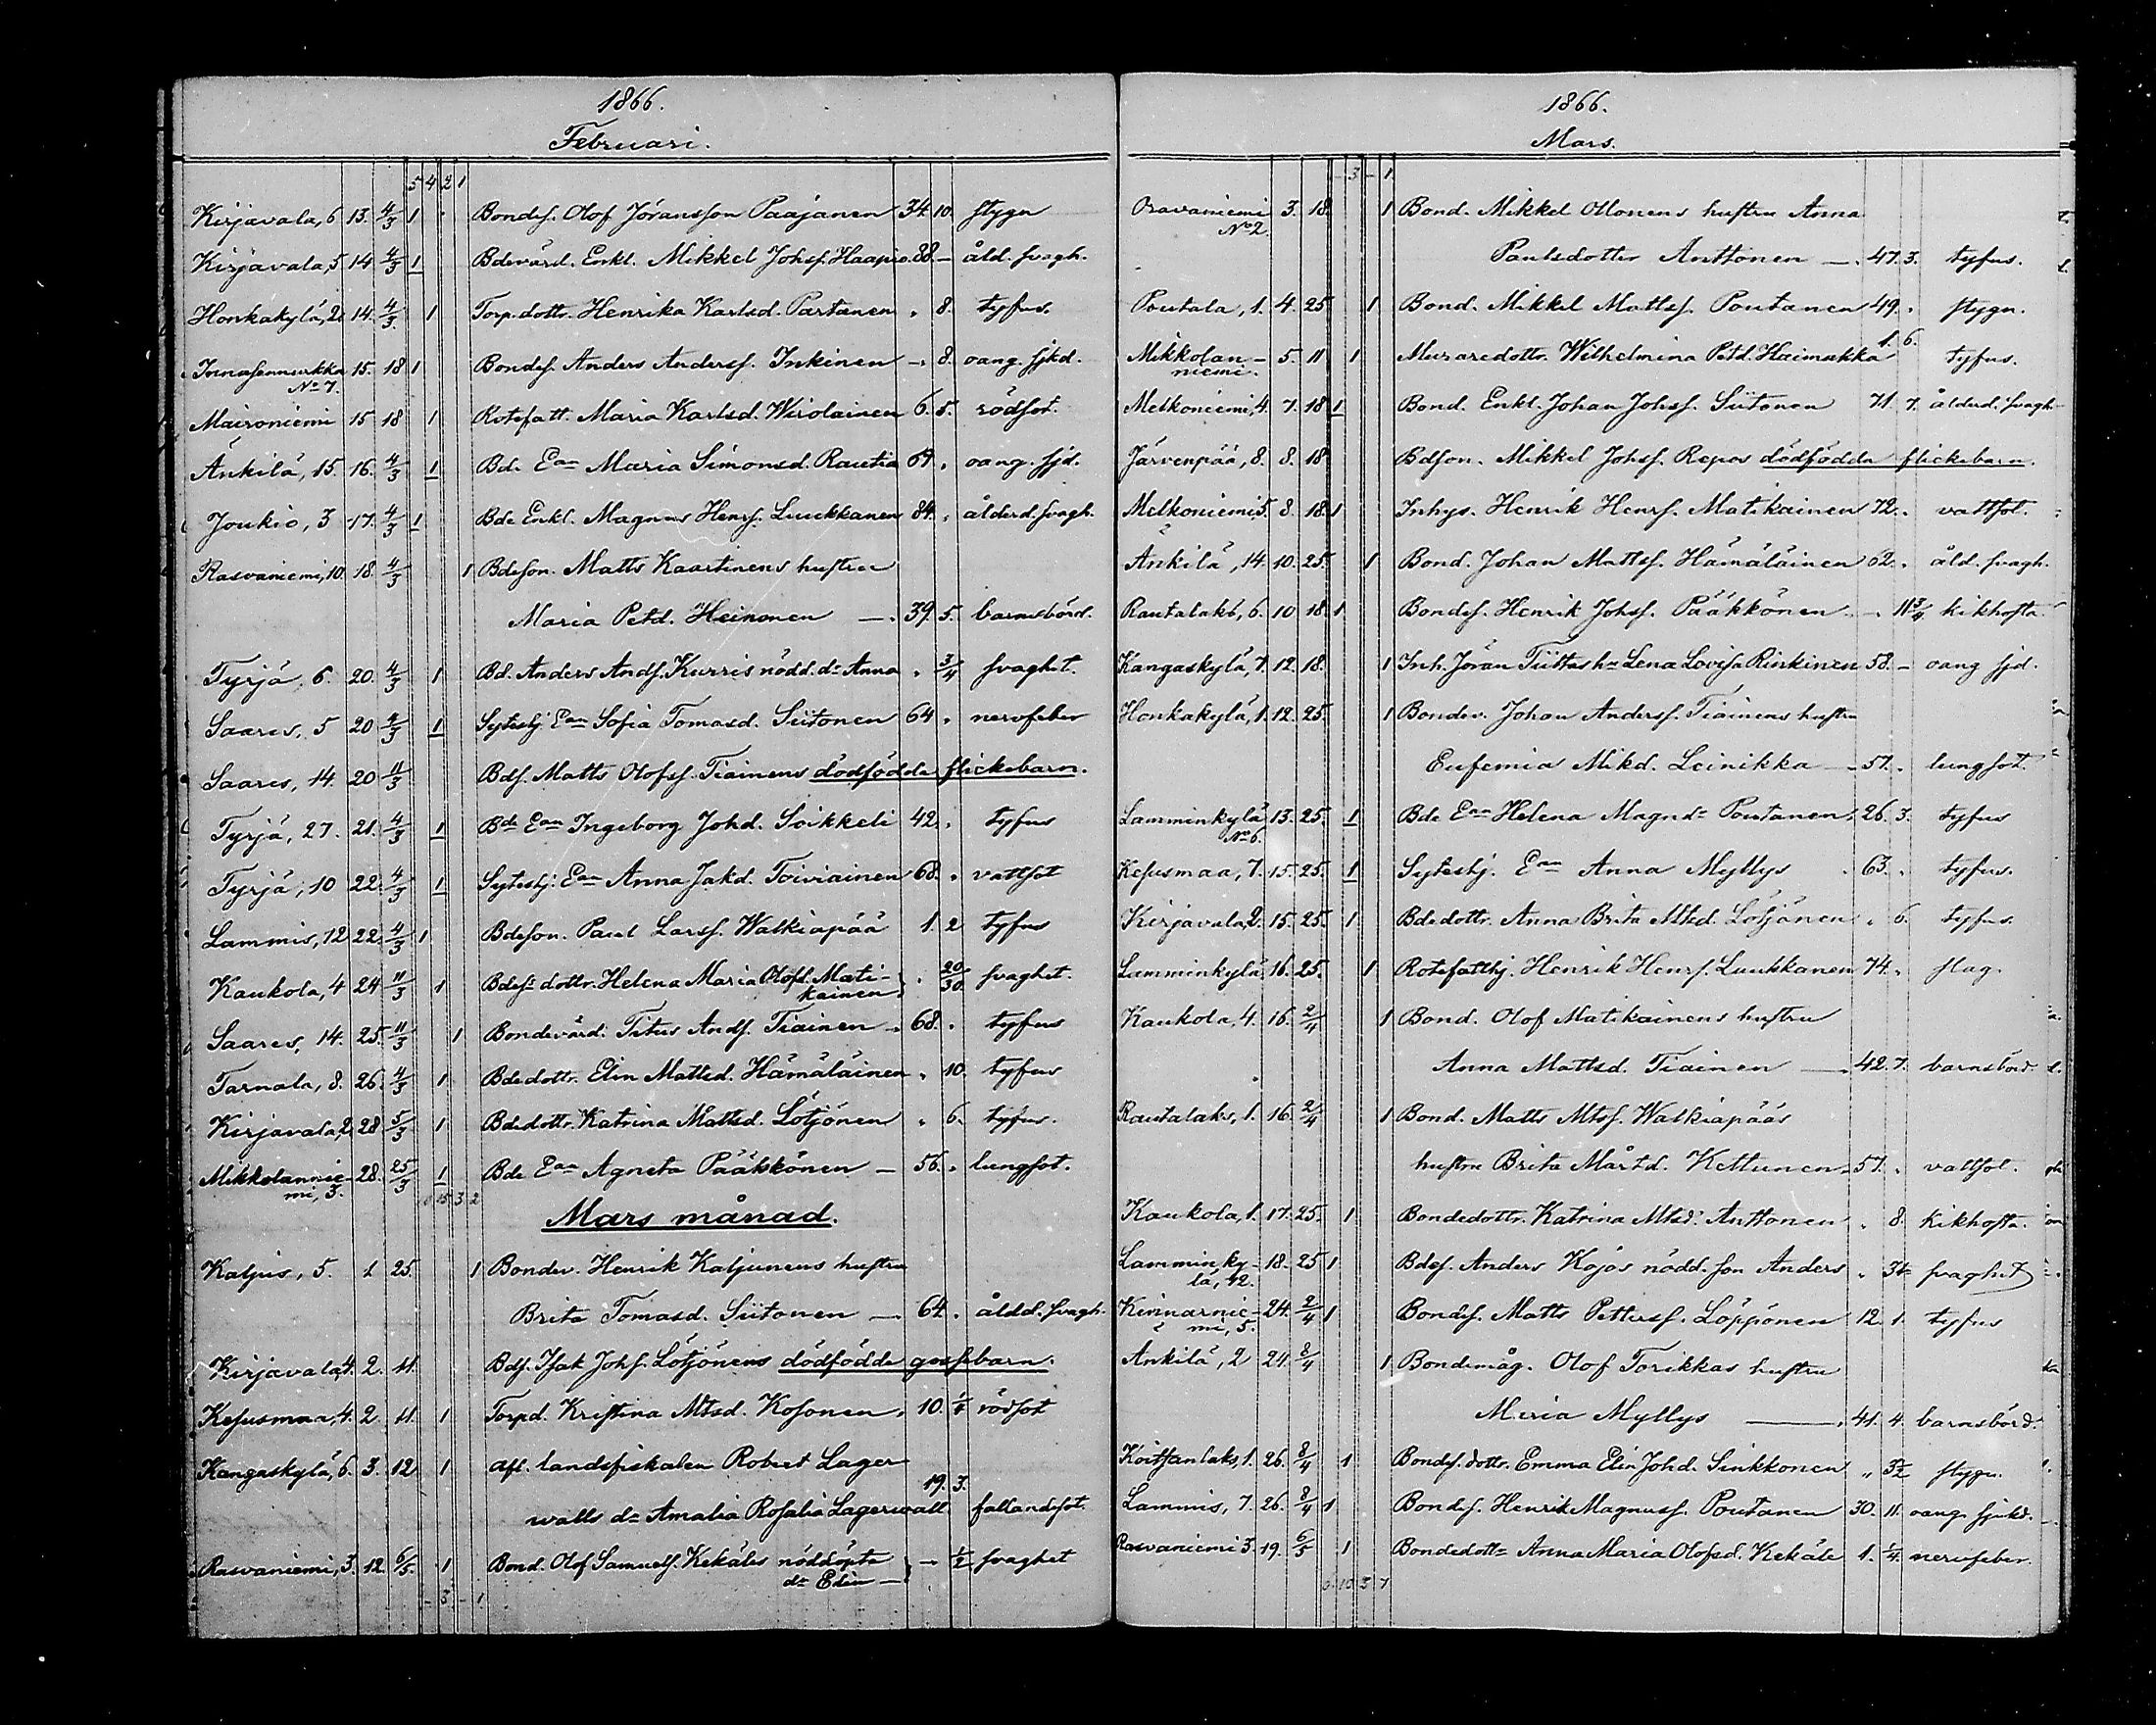 1866.
Februari.
5 4 2 1
Kirjavala, 6 13. 4/3 1 Bondes. Olof Jöransson Paajanen 34. 10. stygn
Kirjavala, 5 14 4/3 1 Bdevärd. Enkl. Mikkel Johsf. Haapio. 88. — åld. svagh.
Honkakylä, 2 14. 4/3 1 Torp. dottr. Henrika Karlsd. Partanen „ 8. tyfus.
No 7. 15. 18 1 Bondes. Anders Andersf. Inkinen — 8. oang. sjkd.
Maironiemi 15 18 1 Rotefatt. Maria Karlsd. Wirolainen 6. 5. rödsot.
Änkilä, 15. 16. 4/3 1 Bde Ean Maria Simonsd. Rautia 64 „ oang. sjd.
Joukio, 3 17. 4/3 1 Bde Enkl. Magnus Henrs. Luukkanen 84. „ ålderd. svagh.
Rasvaniemi, 10. 18. 4/3 1 Bdeson. Matts Kaartinens hustru
Maria Petd. Heinonen — 39. 5. barnsbörd.
Tyrjä, 6 20. 4/3 1 Bd. Anders Ands. Kurris nödd. dr Anna „ 3/4 svaghet.
Saares, 5 20 4/3 1 Sytestj. Ean Sofia Tomasd. Siitonen 64 „ nervfeber
Saares, 14. 20 11/3 Bds. Matts Olofss. Tiainens dödfödda flickebarn.
Tyrjä, 27. 21. 4/3 1 Bde Ean Ingeborg Johd. Soikkeli 42. „ tyfus
Tyrjä, 10 22. 4/3 1 Sytestj. Ean Anna Jakd. Toiviainen 68. „ vattsot
Lammis, 12 22. 4/3 1 Bdeson. Paul Larss. Walkiapää 1. 2 tyfus
Kaukola, 4 24 11/3 1 Bdess dottr. Helena Maria Olofd. Mati-
kainen „ 20/30. svaghet.
Saares, 14. 25. 11/3 1 Bondevärd. Titus Ands. Tiainen — 68. „ tyfus
Tarnala, 8. 26. 4/3 1 Bdedottr. Elin Mattsd. Hämäläinen „ 10. tyfus
Kirjavala, 2 28 5/3 1 Bdedottr. Katrina Mattsd. Lötjönen „ 6. tyfus.
Mikkolannie-
mi, 3. 28. 25/3 1 Bde Ean Agneta Pääkkönen — 56. „ lungsot.
15 3 2
Mars månad.
Kaljus, 5. 1 25. 1 Bondev. Henrik Kaljunens hustru
Brita Tomasd. Siitonen — 64. „ åldd. svagh.
Kirjavala, 4. 2. 11. Bds. Isak Johs. Lötjönens dödfödde gossebarn.
Kesusmaa, 4. 2. 11. 1 Torpd. Kristina Mtsd. Kosonen. 10. rödsot
Kangaskylä, 6. 3. 12 1 afl. landsfiskalen Robert Lager
walls dr Amalia Rosalia Lagerwall 19. 3. fallandesot.
Rasvaniemi, 3. 12. 6/5. 1 Bond. Olof Samuels. Kekäles nöddöpta
dr Edin — — 1/2 svaghet
- 3 - 1.
1866.
Mars.
- 3 - 1
Rasvaniemi
No 2. 3. 18. 1 Bond. Mikkel Ollonens hustru Anna
Paulsdotter Anttonen — 47. 3. tyfus.
Poutala, 1. 4. 25 1 Bond. Mikkel Mattss. Poutanen 49. „ stygn.
Mikkolan-
niemi. 5. 11 1 Muraredottr. Wilhelmina Petd. Haimakka 1. 6. tyfus.
Melkoniemi, 4. 7. 18 1 Bond. Enkl. Johan Johss. Siitonen 71. 7. ålderd. svagh
Järvenpää, 8. 8. 18 Bdson. Mikkel Johss. Repos dödfödda flickebarn.
Melkoniemi, 5. 8. 18 1 Inhys. Henrik Henrs. Matikainen 72. „ vattsot.
Änkilä, 14. 10. 25. 1 Bond. Johan Mattss. Hämäläinen 62. „ åld. svagh.
Rautalaks, 6. 10 18. 1 Bondes. Henrik Johss. Pääkkönen — 11 3/4. kikhosta
Kangaskylä, 7. 12. 18. 1 Inh. Jöran Tiittas hu Lena Lovisa Rinkinen 58. — oang sjd.
Honkakylä, 1. 12. 25. 1 Bondev. Johan Anderss. Tiainens hustru
Eufemia Mikd. Leinikka — 57. „ lungsot.
Lamminkylä
No 6. 13. 25. 1 Bde Ean Helena Magnd. Poutanen. 26. 3. tyfus
Kesusmaa, 7. 15. 25. 1 Sytestj. Ean Anna Myllys 63. „ tyfus.
Kirjavala, 2. 15. 25. 1 Bdedottr. Anna Brita Mtsd. Lötjönen „ 6. tyfus.
Lamminkylä 16. 25. 1 Rotefatthj. Henrik Henrs. Luukkanen 74. „ slag.
Kaukola, 4. 16. 2/4 1 Bond. Olof Matikainens hustru
Anna Mattsd. Tiainen — 42. 7. barnsbörd
Rautalaks, 1. 16. 2/4 1 Bond. Matts Mtss. Walkiapääs
hustru Brita Mårtd. Kettunen. 57. „ vattsot.
Kaukola, 1. 17. 25. 1 Bondedottr. Katrina Mtsd. Anttonen „ 8. kikhosta.
Lamminky-
lä, 12. 18. 25 1 Bdes. Anders Kojos nödd. son Anders „ svaghet
Kinnarnie-
mi, 5. 24. 2/4 1 Bondes. Matts Petterss. Löppönen 12. 1. tyfus
Änkilä, 2 24. 8/4 1 Bondemåg. Olof Torikkas hustru
Maria Myllys — 41. 4. barnsbörd.
Koitsanlaks, 1. 26. 8/4 1 Bondes. dottr. Emma Elin Johd. Sinkkonen „ stygn.
Lammis, 7. 26. 8/4 1 Bondes. Henrik Magnuss. Poutanen 30. 11. oang. sjukd.
Rasvaniemi 3. 19. 6/5 1 Bondedottr Anna Maria Olofsd. Kekäle 1. 1/4. nervfeber.
6. 10 3 7